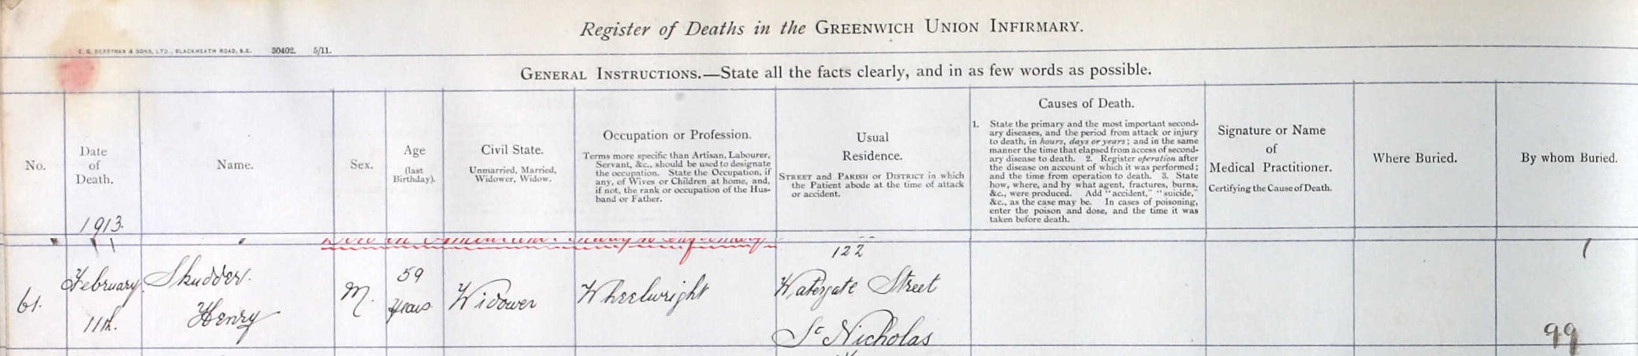 Register of Deaths in the GREENWICH UNION INFIRMARY.
30402. 5/11.
GENERAL INSTRUCTIONS.—State all the facts clearly, and in as few words as possible.
No.
Date
of
Death.
1913.
Name.
Sex.
Age
(last
Birthday).
Civil State.
Unmarried, Married,
Widower, Widow.
Occupation or Profession.
Terms more specific than Artisan, Labourer,
Servant, &c., should be used to designate
the occupation. State the Occupation, if
any, of Wives or Children at home, and,
if not, the rank or occupation of the Hus-
band or Father.
Usual
Residence.
STREET and PARISH or DISTRICT in which
the Patient abode at the time of attack
or accident.
Causes of Death.
1. State the primary and the most important second-
ary diseases, and the period from attack or injury
to death, in hours, days or years; and in the same
manner the time that elapsed from access of second-
ary disease to death. 2. Register operation after
the disease on account of which it was performed;
and the time from operation to death. 3. State
how, where, and by what agent, fractures, burns,
&c., were produced. Add "accident," "suicide,"
&c., as the case may be. In cases of poisoning,
enter the poison and dose, and the time it was
taken before death.
Signature or Name
of
Medical Practitioner.
Certifying the Cause of Death.
Where Buried.
By whom Buried.
61.
February
11th.
Skudder.
Henry
M.
59
years
Widower
Wheelwright
122
Watergate Street
St Nicholas
99